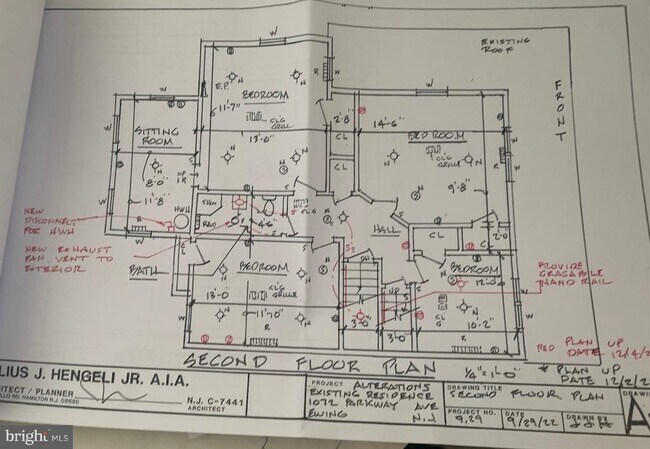 EXISTING
ROOF
FRONT
W
W
W
E.P.
BEDROOM
11'-7"
CLG
GRILL
13'-0"
2'-8"
CL
CL
14'-6"
BEDROOM
CLG
GRILLE
9'-8"
SITTING
ROOM
8'-0"
11'-8"
UP
1 R
HWH
SHW
RAD
4'-6"
CLG
HALL
CL
2'-0
NEW
DISCONNECT
FOR HWH
NEW EXHAUST
FAN. VENT TO
EXTERIOR
BATH
BEDROOM
13'-0
CLG
GRILLE
11'-10"
R
S3
DN
UP
3'-0"
3'-0"
BEDROOM
12'-0"
CL
G
10'-2"
R
PROVIDE
GRASPABLE
HAND RAIL
RED PLAN UP
DATE 12/4/2
SECOND FLOOR PLAN
1/4"=1'-0"
* PLAN UP
DATE 12/2/2
LIUS J. HENGELI JR. A.I.A.
ITECT / PLANNER
LLO RD. HAMILTON N.J. 08690
N.J. C-7441
ARCHITECT
PROJECT ALTERATIONS
EXISTING RESIDENCE
1072 PARKWAY AVE
EWING N.J.
DRAWING TITLE
SECOND FLOOR PLAN
PROJECT NO.
9.29
DATE
9/29/22
DRAWN BY
A
bright MLS